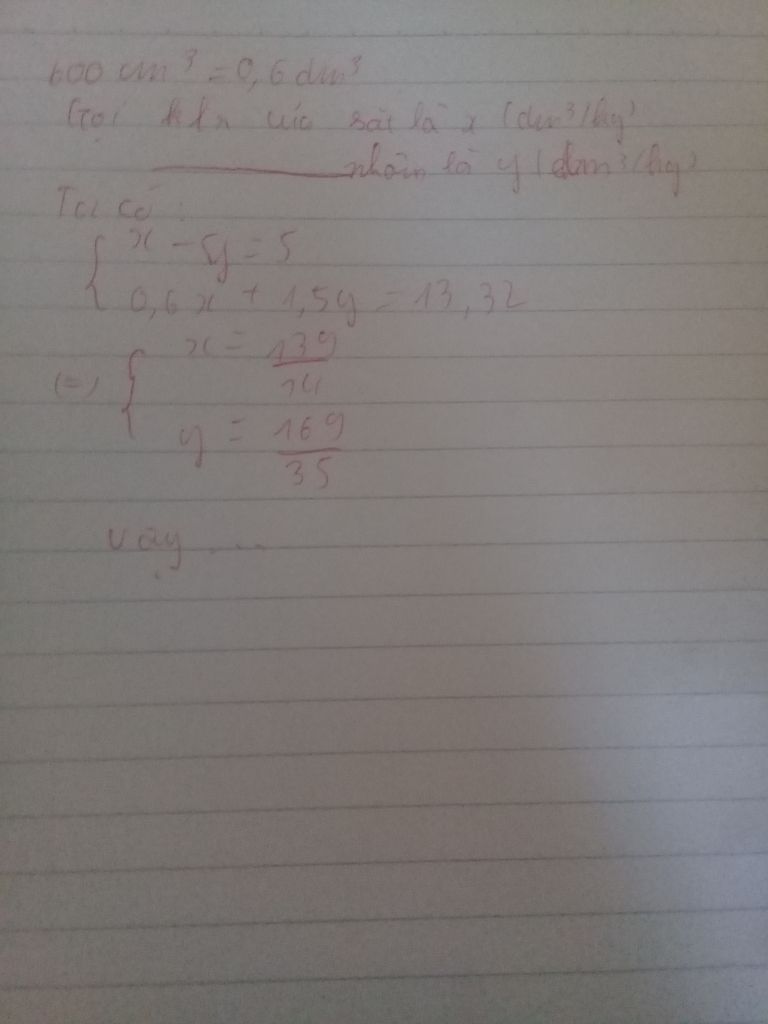 600 cm³ = 0,6 dm³
Gọi klr của sắt là x (dm³/kg)
nhôm là y (dm³/kg)
Ta có:
{ x - 5y = 5
0,6x + 1,5y = 13,32
(=) { x = 139
y = 169/35
Vậy ...